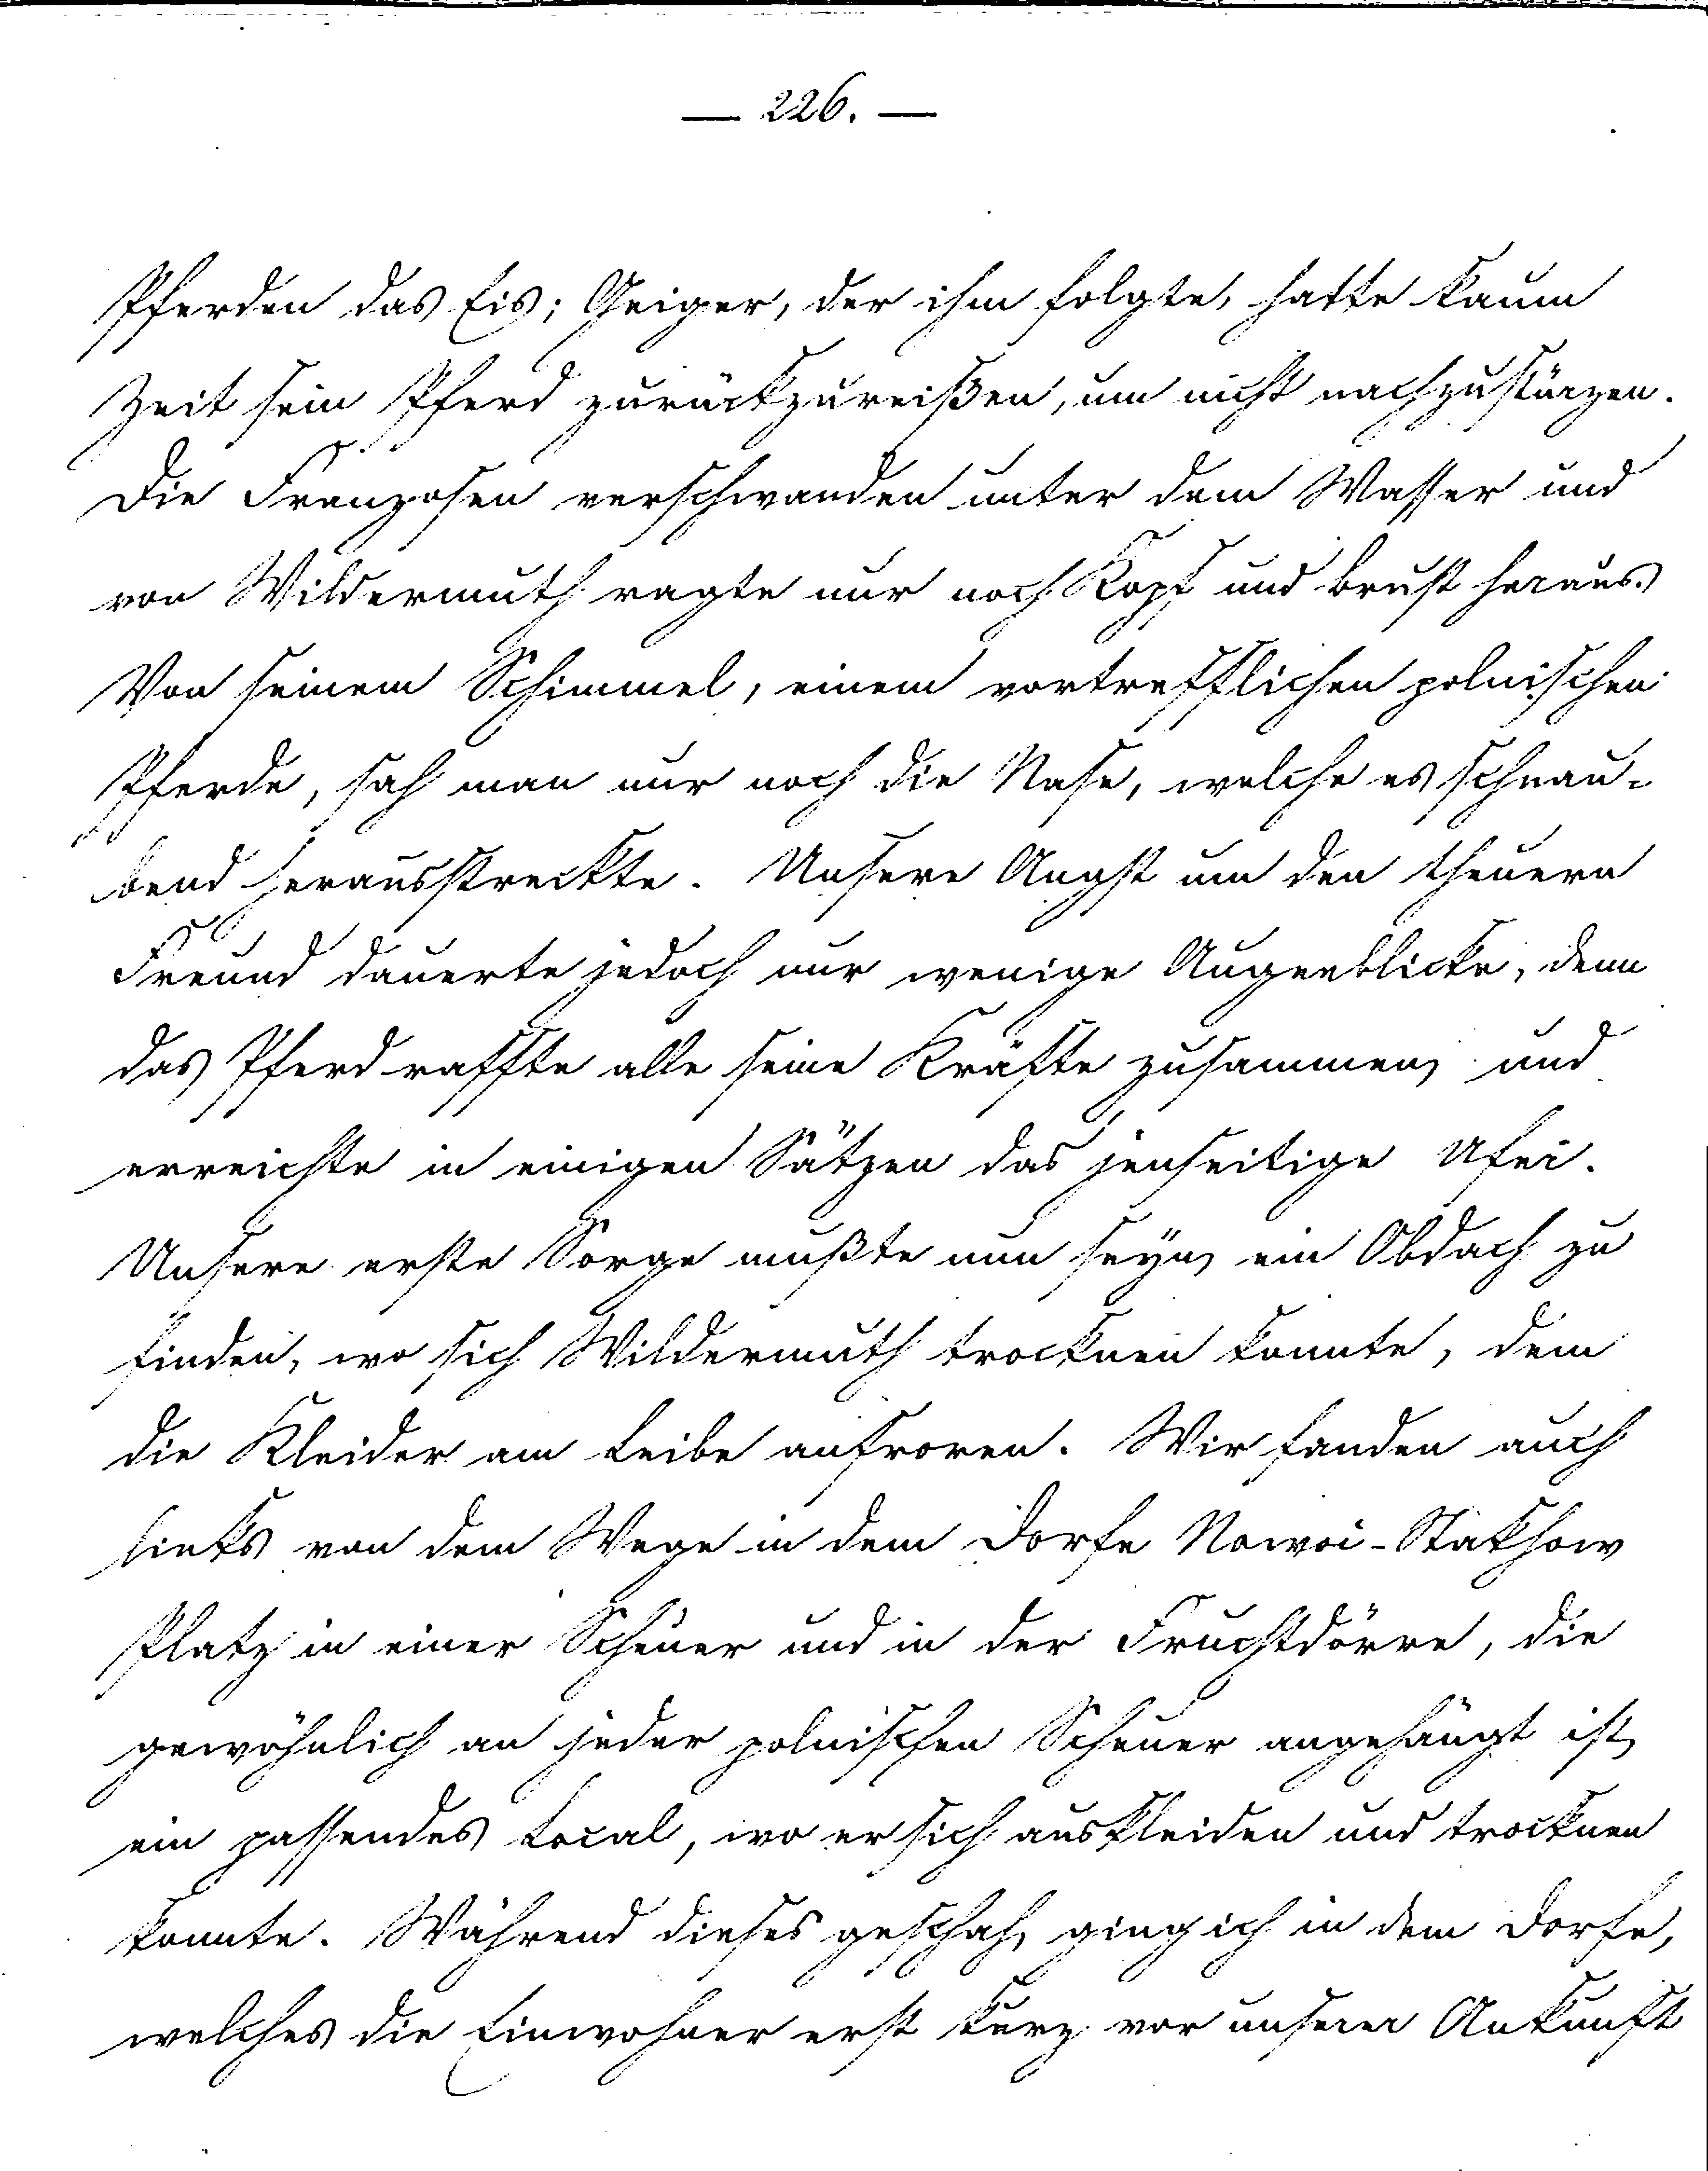 — 226. —
Pferden das Eis; Geiger, der ihm folgte, hatte kaum
Zeit sein Pferd zurückzureißen, um nicht nachzustürzen.
Die Franzosen verschwanden unter dem Wasser und
von Wildermuth ragte nur noch Kopf und Brust heraus.
Von seinem Schimmel, einem vortrefflichen polnischen
Pferde, sah man nur noch die Nase, welche es schnau-
bend herausstreckte. Unsere Angst um den theuern
Freund dauerte jedoch nur wenige Augenblicke, denn
das Pferd raffte alle seine Kräfte zusammen, und
erreichte in einigen Sätzen das jenseitige Ufer.
Unsere erste Sorge mußte nun seyn, ein Obdach zu
finden, wo sich Wildermuth trocknen konnte, dem
die Kleider am Leibe anfroren. Wir fanden auch
links von dem Wege in dem Dorfe Nowoi-Stakhow
Platz in einer Scheuer und in der Fruchtdörre, die
gewöhnlich an jeder polnischen Scheuer angehängt ist,
ein passendes Local, wo er sich auskleiden und trocknen
konnte. Während dieses geschah, ging ich in dem Dorfe,
welches die Einwohner erst kurz vor unserer Ankunft